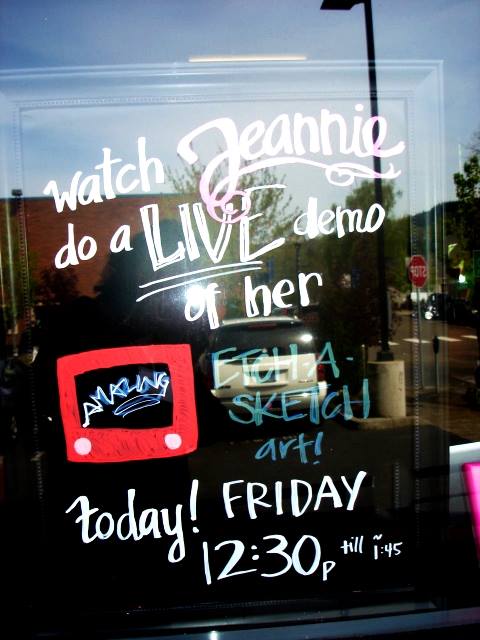 watch Jeannie
do a LIVE demo
of her
AMAZING
ETCH-A-
SKETCH
art!
today! FRIDAY
12:30p till 1:45
STOP